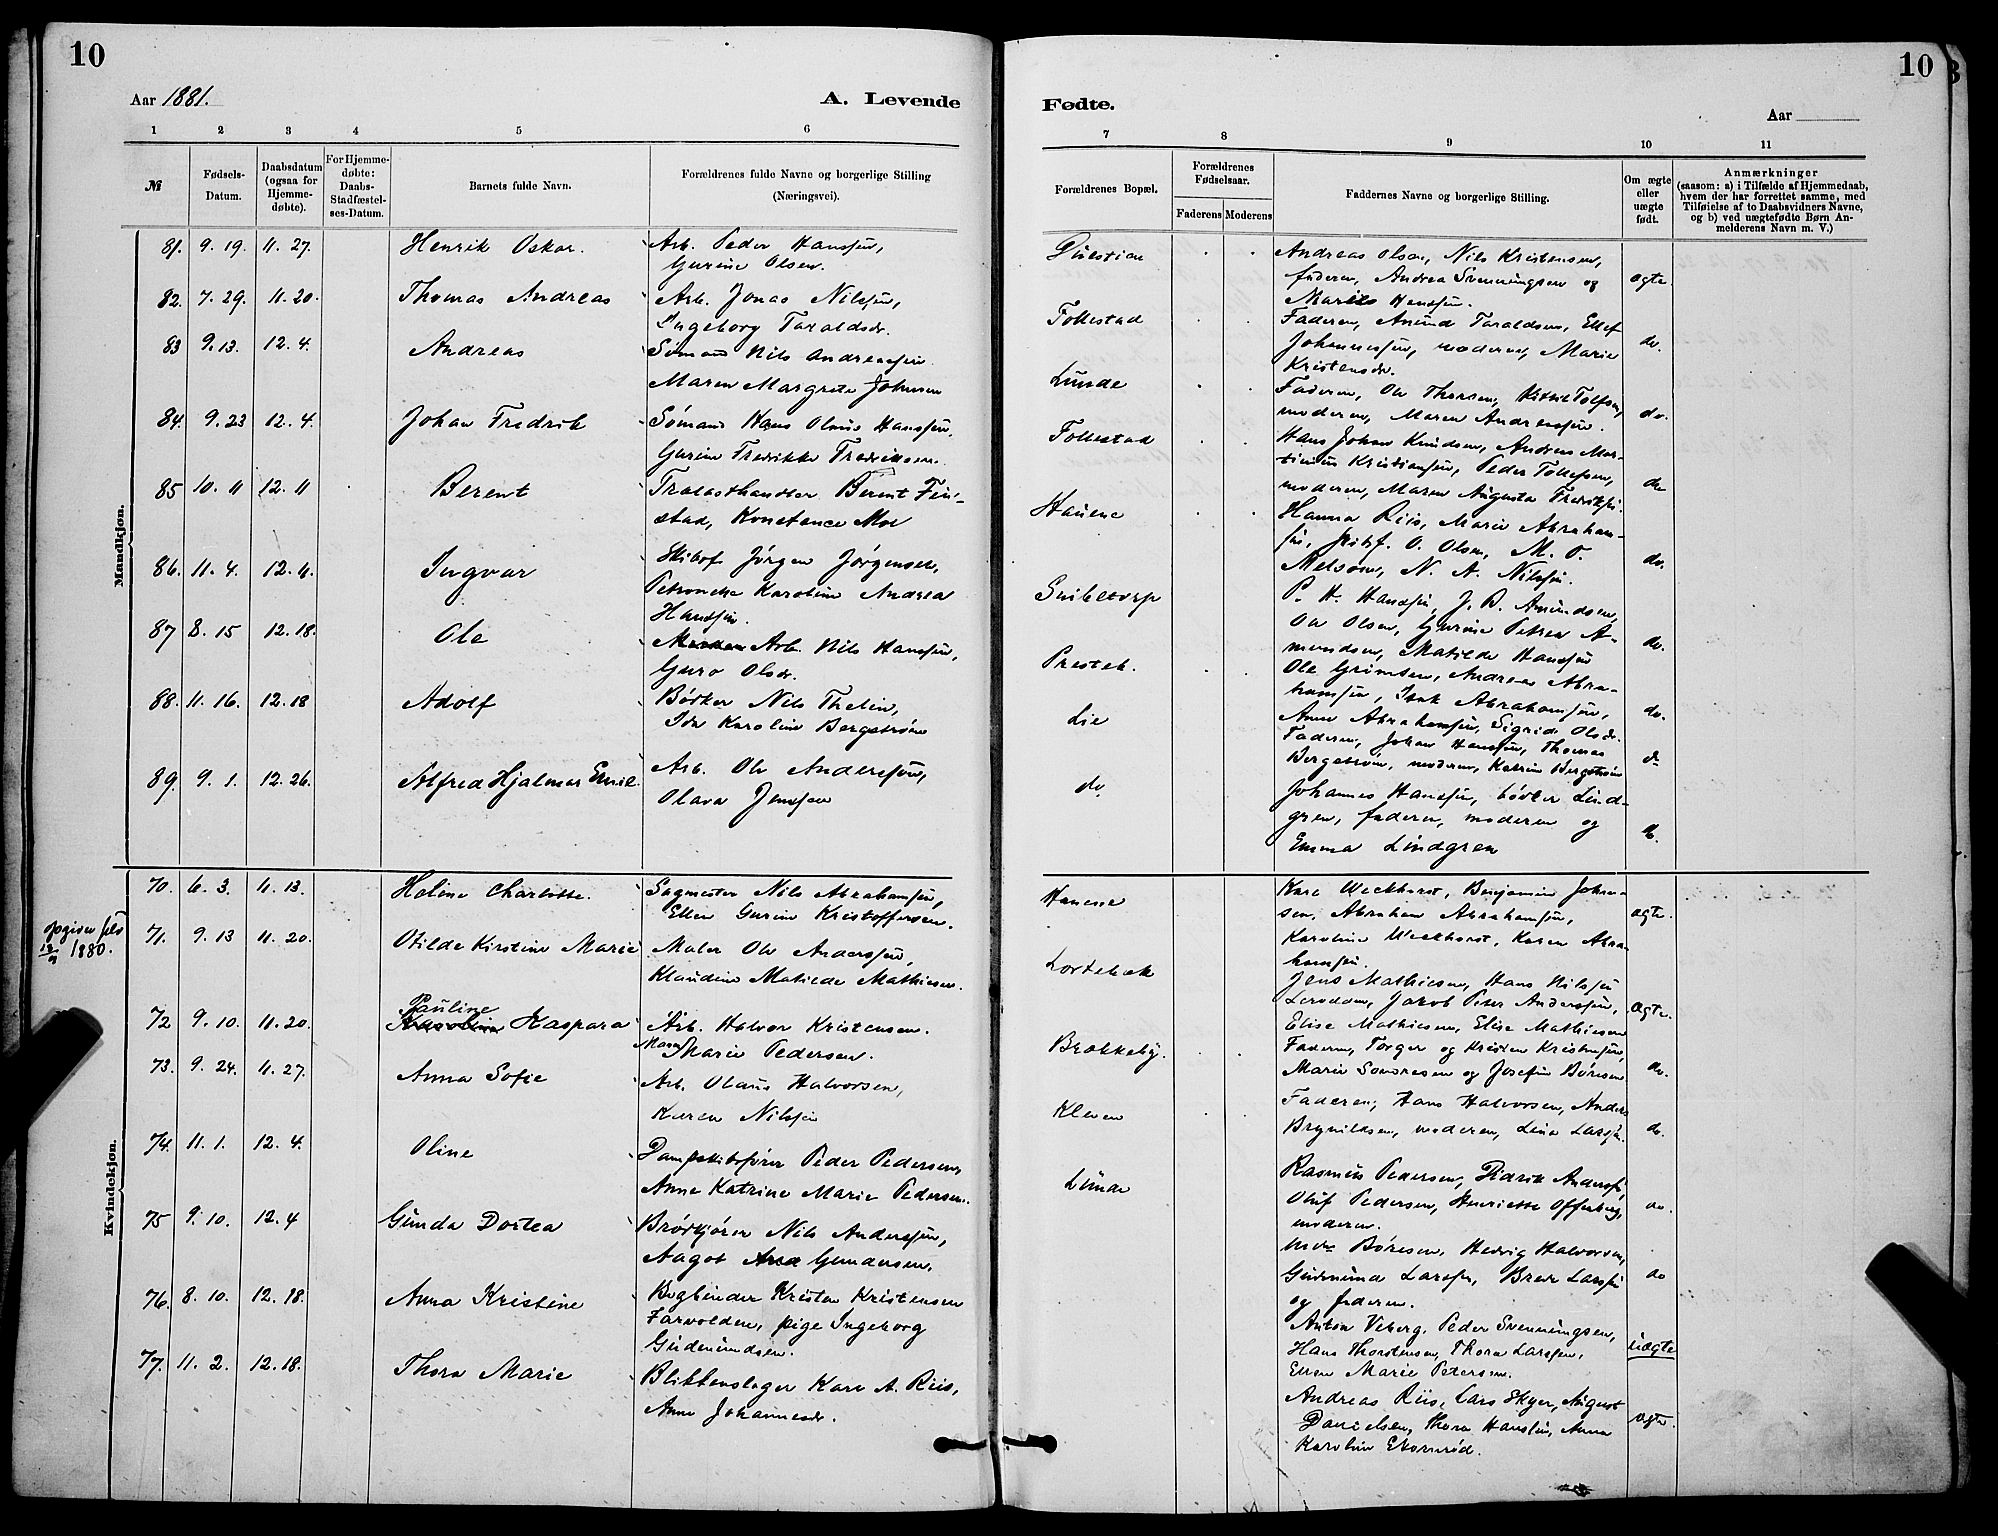 10
10
Aar 1881.
A. Levende
Fødte.
Aar
1 2 3 4 5 6
7 8 9 10 11
№
Fødsels-
Datum.
Daabsdatum
(ogsaa for
Hjemme-
døbte).
For Hjemme-
døbte:
Daabs-
Stadfæstel-
ses-Datum.
Barnets fulde Navn.
Forældrenes fulde Navne og borgerlige Stilling
(Næringsvei).
Forældrenes Bopæl.
Forældrenes
Fødselsaar.
Faderens Moderens
Faddernes Navne og borgerlige Stilling.
Om ægte
eller
uægte
født.
Anmærkninger
(saasom: a) i Tilfælde af Hjemmedaab,
hvem der har forrettet samme, med
Tilføielse af to Daabsvidners Navne,
og b) ved uægtefødte Børn An-
melderens Navn m. V.)
Mandkjøn.
81. 9. 19. 11. 27. Henrik Oskar. Arb. Peder Hanssen,
Gurine Olsen.
82. 7. 29. 11. 20. Thomas Andreas Arb. Jonas Nilssen,
Ingeborg Taraldsdr.
83 9. 13. 12. 4. Andreas Sømand Nils Andreassen
Maren Margrete Johnsen
84. 9. 23 12. 4. Johan Fredrik Sømand Hans Olaus Hanssen,
Gurine Fredrikke Fredriksen.
85 10. 11 12. 11 Berent Trælasthandler Berent Fin-
stad, Konstance Moe
86. 11. 4. 12. 11. Ingvar Skibsf Jørgen Jørgensen,
Petronelle Karoline Andrea
Hanssen.
87 8. 15 12. 18. Ole Arb. Nils Hanssen,
Guro Olsdr.
88. 11. 16. 12. 18 Adolf Bødker Nils Thelin,
Ida Karoline Bergstrøm
89. 9. 1. 12. 26. Alfred Hjalmar Emil. Arb. Ole Anderssen,
Olava Jenssen
Andreas Olsen, Nils Kristensen,
faderen, Andrea Svenningsen og ægte.
Hanssen.
Follestad
Faderen, Amund Taraldsen, Ellef
Johannessen, moderen, Marie do.
Kristensdr.
Lunde
Faderen, Ole Thorsen, Kittil Tolfsen,
moderen, Maren Andreassen. do.
Follestad
Hans Johan Knudsen, Andreas Mar-
tinius Kristiansen, Peder Tollefsen,
moderen, Maren Augusta Fredriksen. do
Hauene
Hanna Riis, Marie Abraham-
sen, skibsf. O. Olsen, M. O.
Melsom, N. A. Nilssen. do.
P. H. Hanssen, J. B. Amundsen,
Ole Olsen, Gurine Petrea A-
mundsen, Matilde Hanssen do.
Presteb.
Ole Grimsen, Andreas Abra-
hamsen, Isak Abrahamsen,
Anne Abrahamsen, Sigrid Olsdr. do.
Lie
Faderen, Johan Hanssen, Thomas
Bergstrøm, moderen, Katrine Bergstrøm do
do.
Johannes Hanssen, bødker Lind-
gren, faderen, moderen og
Emma Lindgren do.
Kvindekjøn.
70. 6. 3. 11. 13. Helene Charlotte. Sagmester Nils Abrahamsen,
Ellen Gurine Kristoffersen.
opgiver
12/9 1880.
71. 9. 13 11. 20. Otilde Kirstine Marie Maler Ole Anderssen,
Klaudine Matilde Mathiesen.
Pauline
72 9. 10. 11. 20. Karoline Kaspara Arb. Halvor Kristensen.
Maren
Marie Pedersen.
73. 9. 24. 11. 27. Anna Sofie Arb. Olaus Halvorsen,
Karen Nilssen
74. 11. 1. 12. 4. Oline Dampskibsfører Peder Pedersen,
Anne Katrine Marie Pedersen.
75 9. 10. 12. 4 Gunda Dortea Brødkjører Nils Anderssen,
Aagot Gundersen.
76. 8. 10. 12. 18. Anna Kristine Bogbinder Kristen Kristensen
Farvolden, pige Ingeborg
Gudmundsen.
77. 11. 2. 12. 18. Thora Marie Blikkenslager Karl A. Riis,
Anne Johannesdr.
Hauene
Karl Weckhorst, Benjamin Johan-
sen, Abraham Abrahamsen, ægte.
Karoline Weckhorst, Karen Abra-
hamsen.
Lortebæk
Jens Mathiesen, Hans Nilssen
Jakob Peter Anderssen, ægte.
Elise Mathiesen, Elise Mathiesen
Brækkeby.
Faderen, Torger og Kristen Kristensen,
Marie Sondresen og Josefine Børesen do.
Kleven
Faderen, Hans Halvorsen, Anders
Brynildsen, moderen, Lina Larssen. do.
Lunde
Rasmus Pedersen, Didrik Anderssen,
Oluf Pedersen, Henriette Offerberg, do.
moderen.
Børesen, Hedvig Halvorsen,
Gudmund Larssen, Brede Larssen do
og faderen.
Anton Veberg, Peder Svenningsen,
Hans Thorstensen, Thora Larssen, uægte
Ellen Marie Petersen.
Andreas Riis, Lars Skyer, August
Danielsen, Thora Hanssen, Anna ægte.
Karoline Ekornrød.